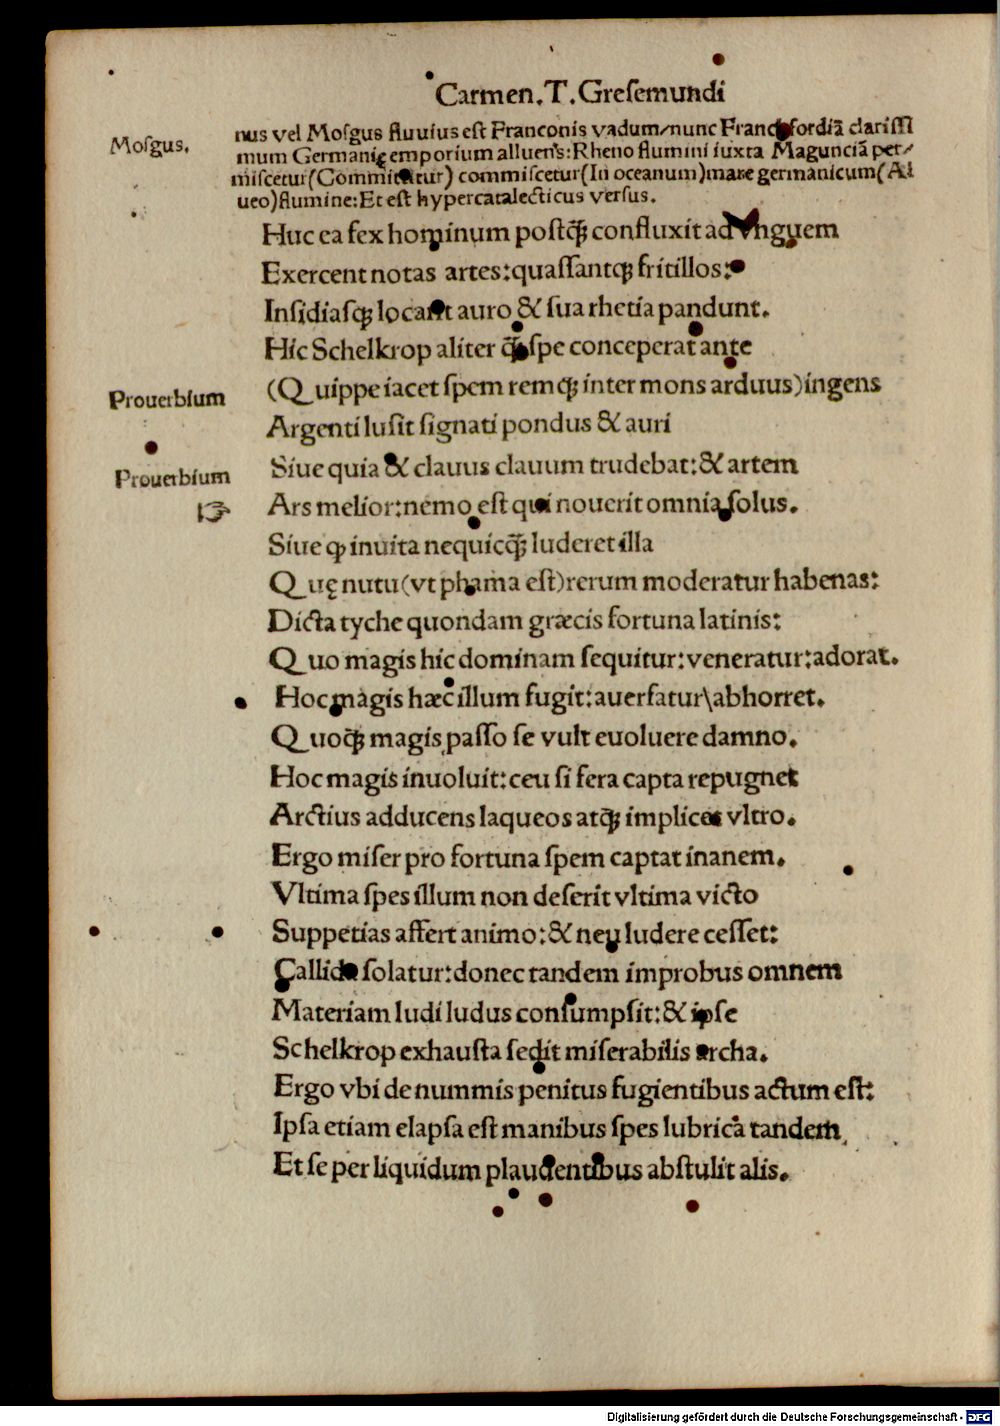 Carmen. T. Gresemundi
Mosgus.
nus vel Mosgus fluuius est Franconis vadum/nunc Franckfordiã clarissi
mum Germanię emporium alluens: Rheno flumini iuxta Magunciã per/
miscetur (Commititur) commiscetur (In oceanum) mare germanicum (Al
ueo) flumine: Et est hypercatalecticus versus.
Huc ea fex hominum postq̃ꝫ confluxit ad vnguem
Exercent notas artes: quassantqꝫ fritillos:
Insidiasqꝫ locant auro & sua rhetia pandunt.
Hic Schelkrop aliter q̃ꝫ spe conceperat ante
Prouerbium
(Quippe iacet spem remqꝫ inter mons arduus) ingens
Argenti lusit signati pondus & auri
Prouerbium
Siue quia & clauus clauum trudebat: & artem
☞ Ars melior: nemo est qui nouerit omnia solus.
Siue ꝙ inuita nequicq̃ꝫ luderet illa
Quę nutu (vt phama est) rerum moderatur habenas:
Dicta tyche quondam græcis fortuna latinis:
Quo magis hic dominam sequitur: veneratur: adorat.
Hoc magis hæc illum fugit: auersatur\abhorret.
Quoq̃ꝫ magis passo se vult euoluere damno.
Hoc magis inuoluit: ceu si fera capta repugnet
Arctius adducens laqueos atq̃ꝫ implicet vltro.
Ergo miser pro fortuna spem captat inanem.
Vltima spes illum non deserit vltima victo
Suppetias affert animo: & neu ludere cesset:
Callida solatur: donec tandem improbus omnem
Materiam ludi ludus consumpsit: & ipse
Schelkrop exhausta sedit miserabilis archa.
Ergo vbi de nummis penitus fugientibus actum est:
Ipsa etiam elapsa est manibus spes lubrica tandem
Et se per liquidum plaudentibus abstulit alis.
Digitalisierung gefördert durch die Deutsche Forschungsgemeinschaft - DFG